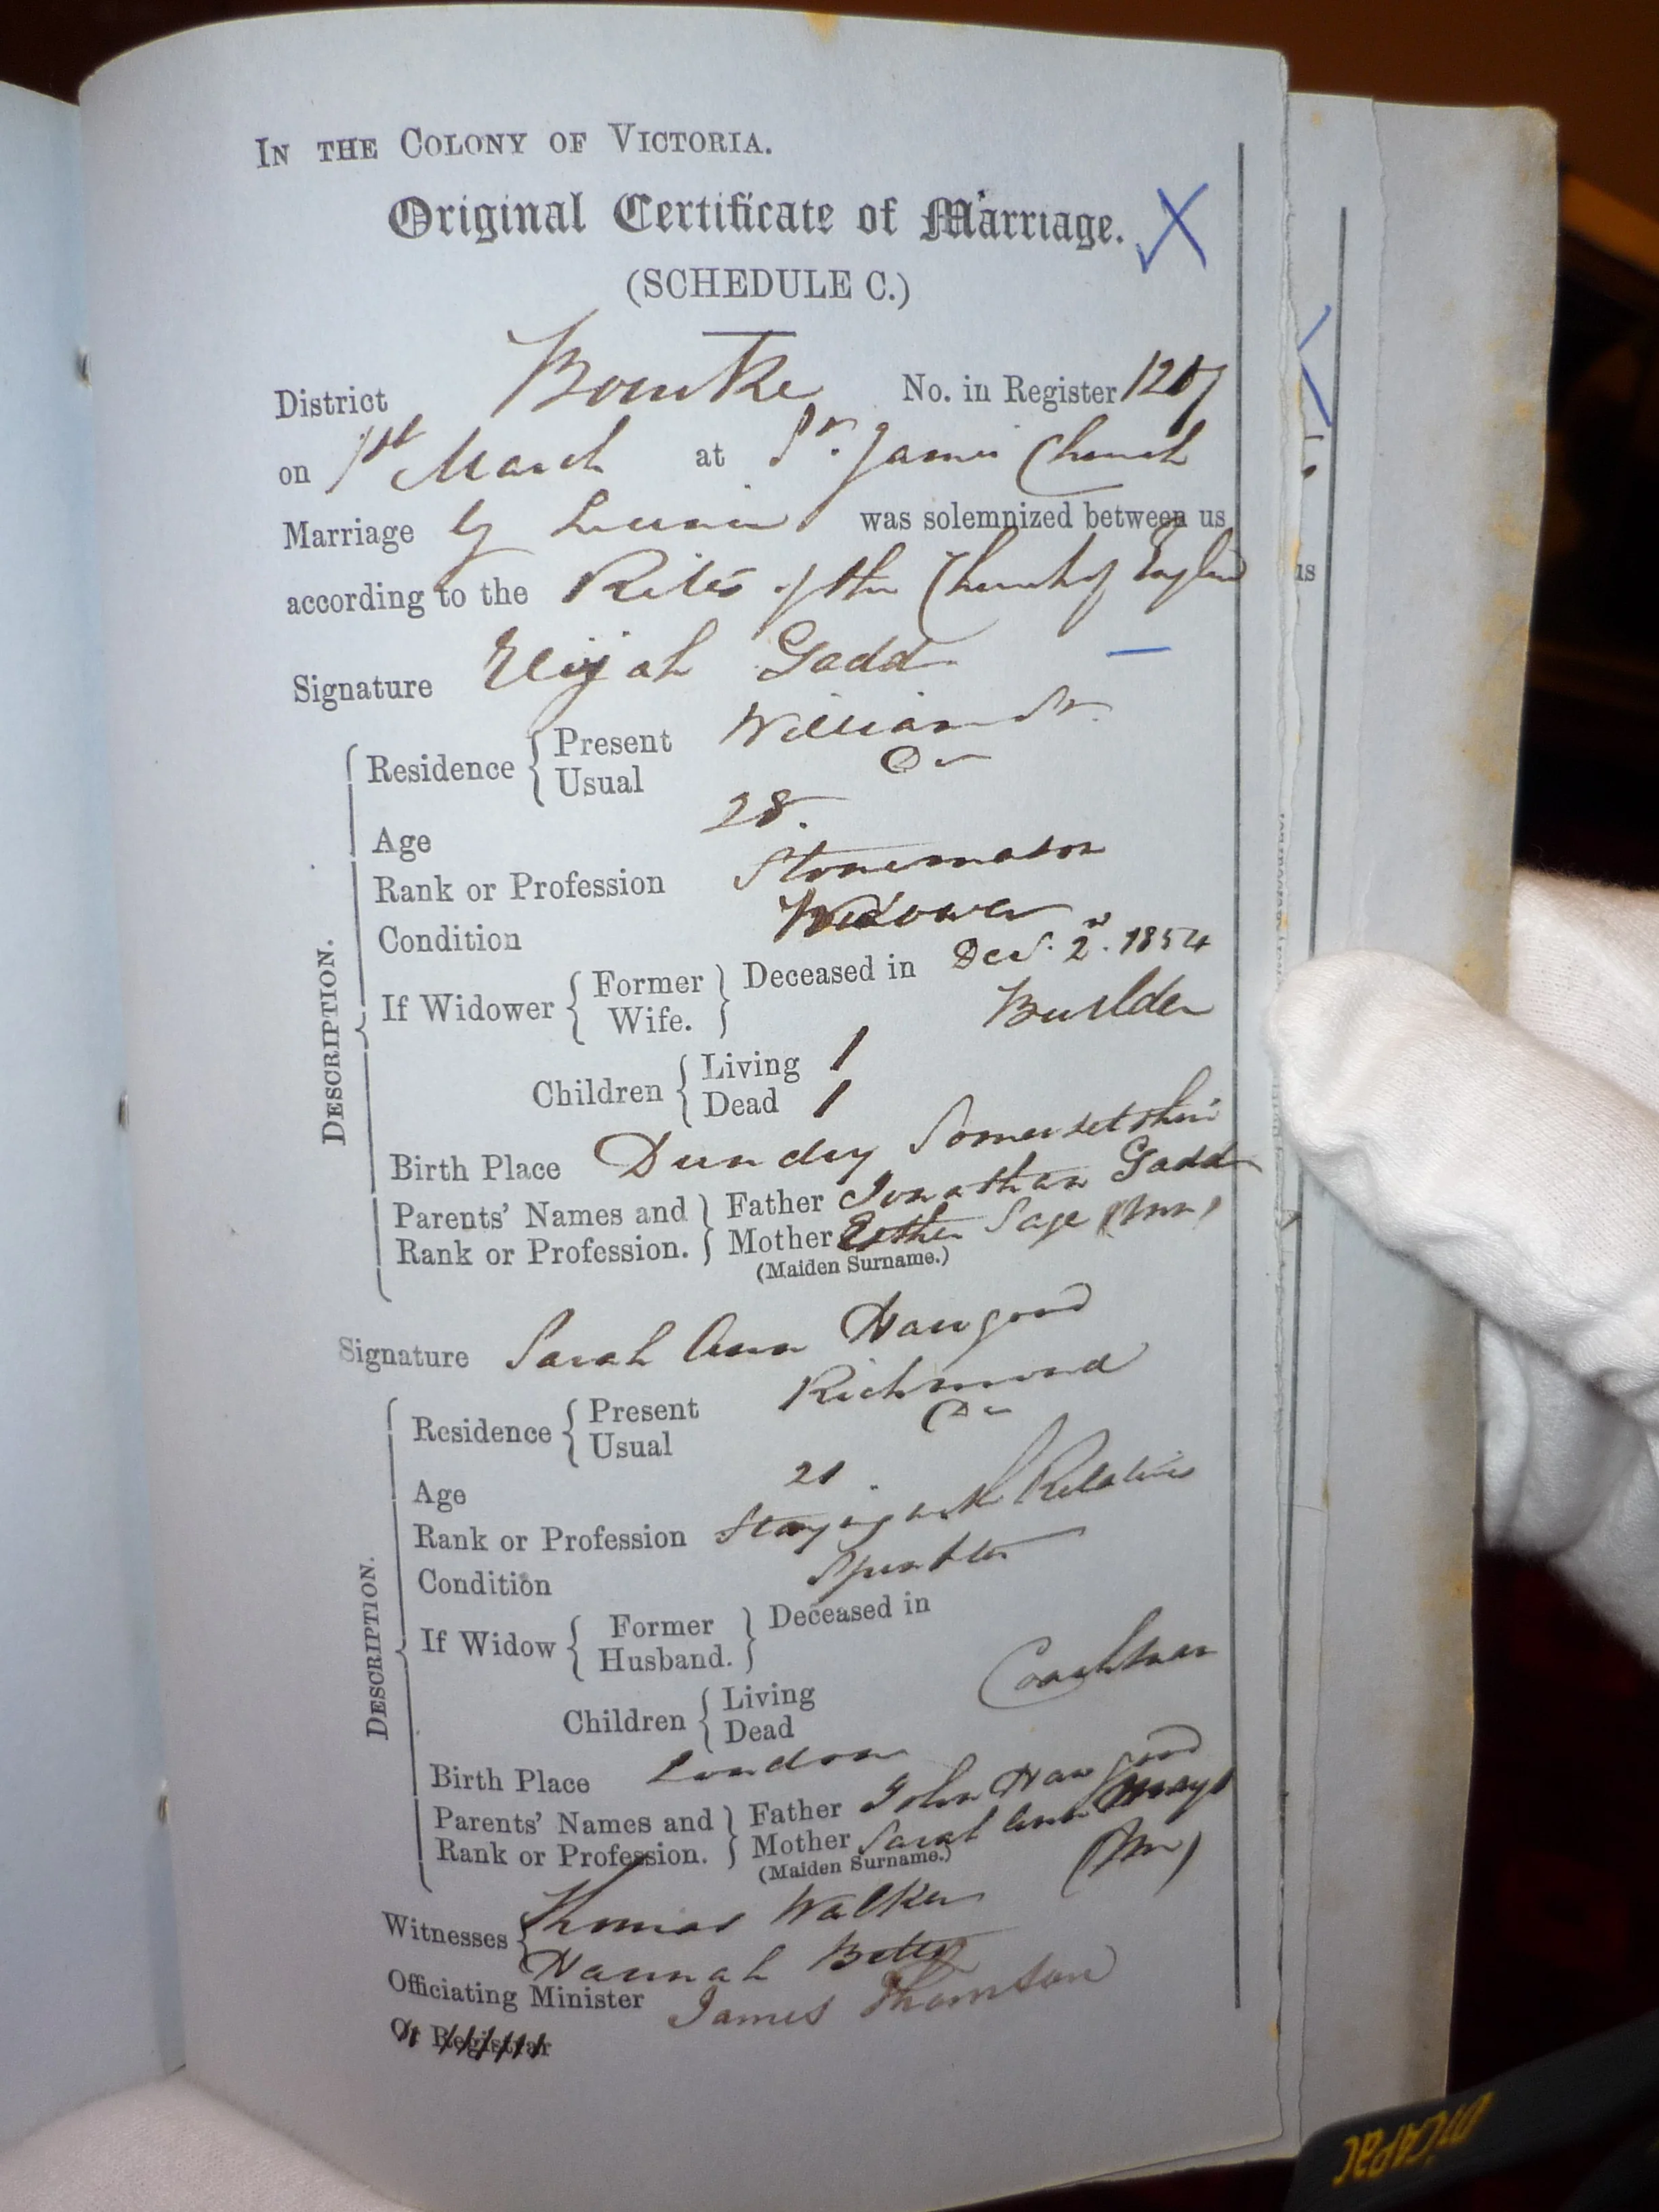 IN THE COLONY OF VICTORIA.
Original Certificate of Marriage.
(SCHEDULE C.)
District Bourke No. in Register 1207
on 1st March at St. James Church
Marriage by Licence was solemnized between us
according to the Rites of the Church of England
Signature Elijah Gadd
Residence { Present William St.
Usual Do
Age 28.
Rank or Profession Stonemason
Condition Widower
If Widower { Former Wife. } Deceased in Dec. 2n. 1854
Builder
Children { Living 1
Dead 1
Birth Place Dundry Somersetshire
Parents' Names and } Father Jonathan Gadd
Rank or Profession. } Mother Esther Sage
(Maiden Surname.)
DESCRIPTION.
Signature Sarah Ann Hawgood
Residence { Present Richmond
Usual Do
Age 21
Rank or Profession Staying with Relatives
Condition Spinster
If Widow { Former Husband. } Deceased in
Coachman
Children { Living
Dead
Birth Place London
Parents' Names and } Father John Hawgood
Rank or Profession. } Mother Sarah Ann
(Maiden Surname.)
DESCRIPTION.
Witnesses { Thomas Walker
Hannah Betts
Officiating Minister James Thomson
Or Registrar
is
DiCAPac